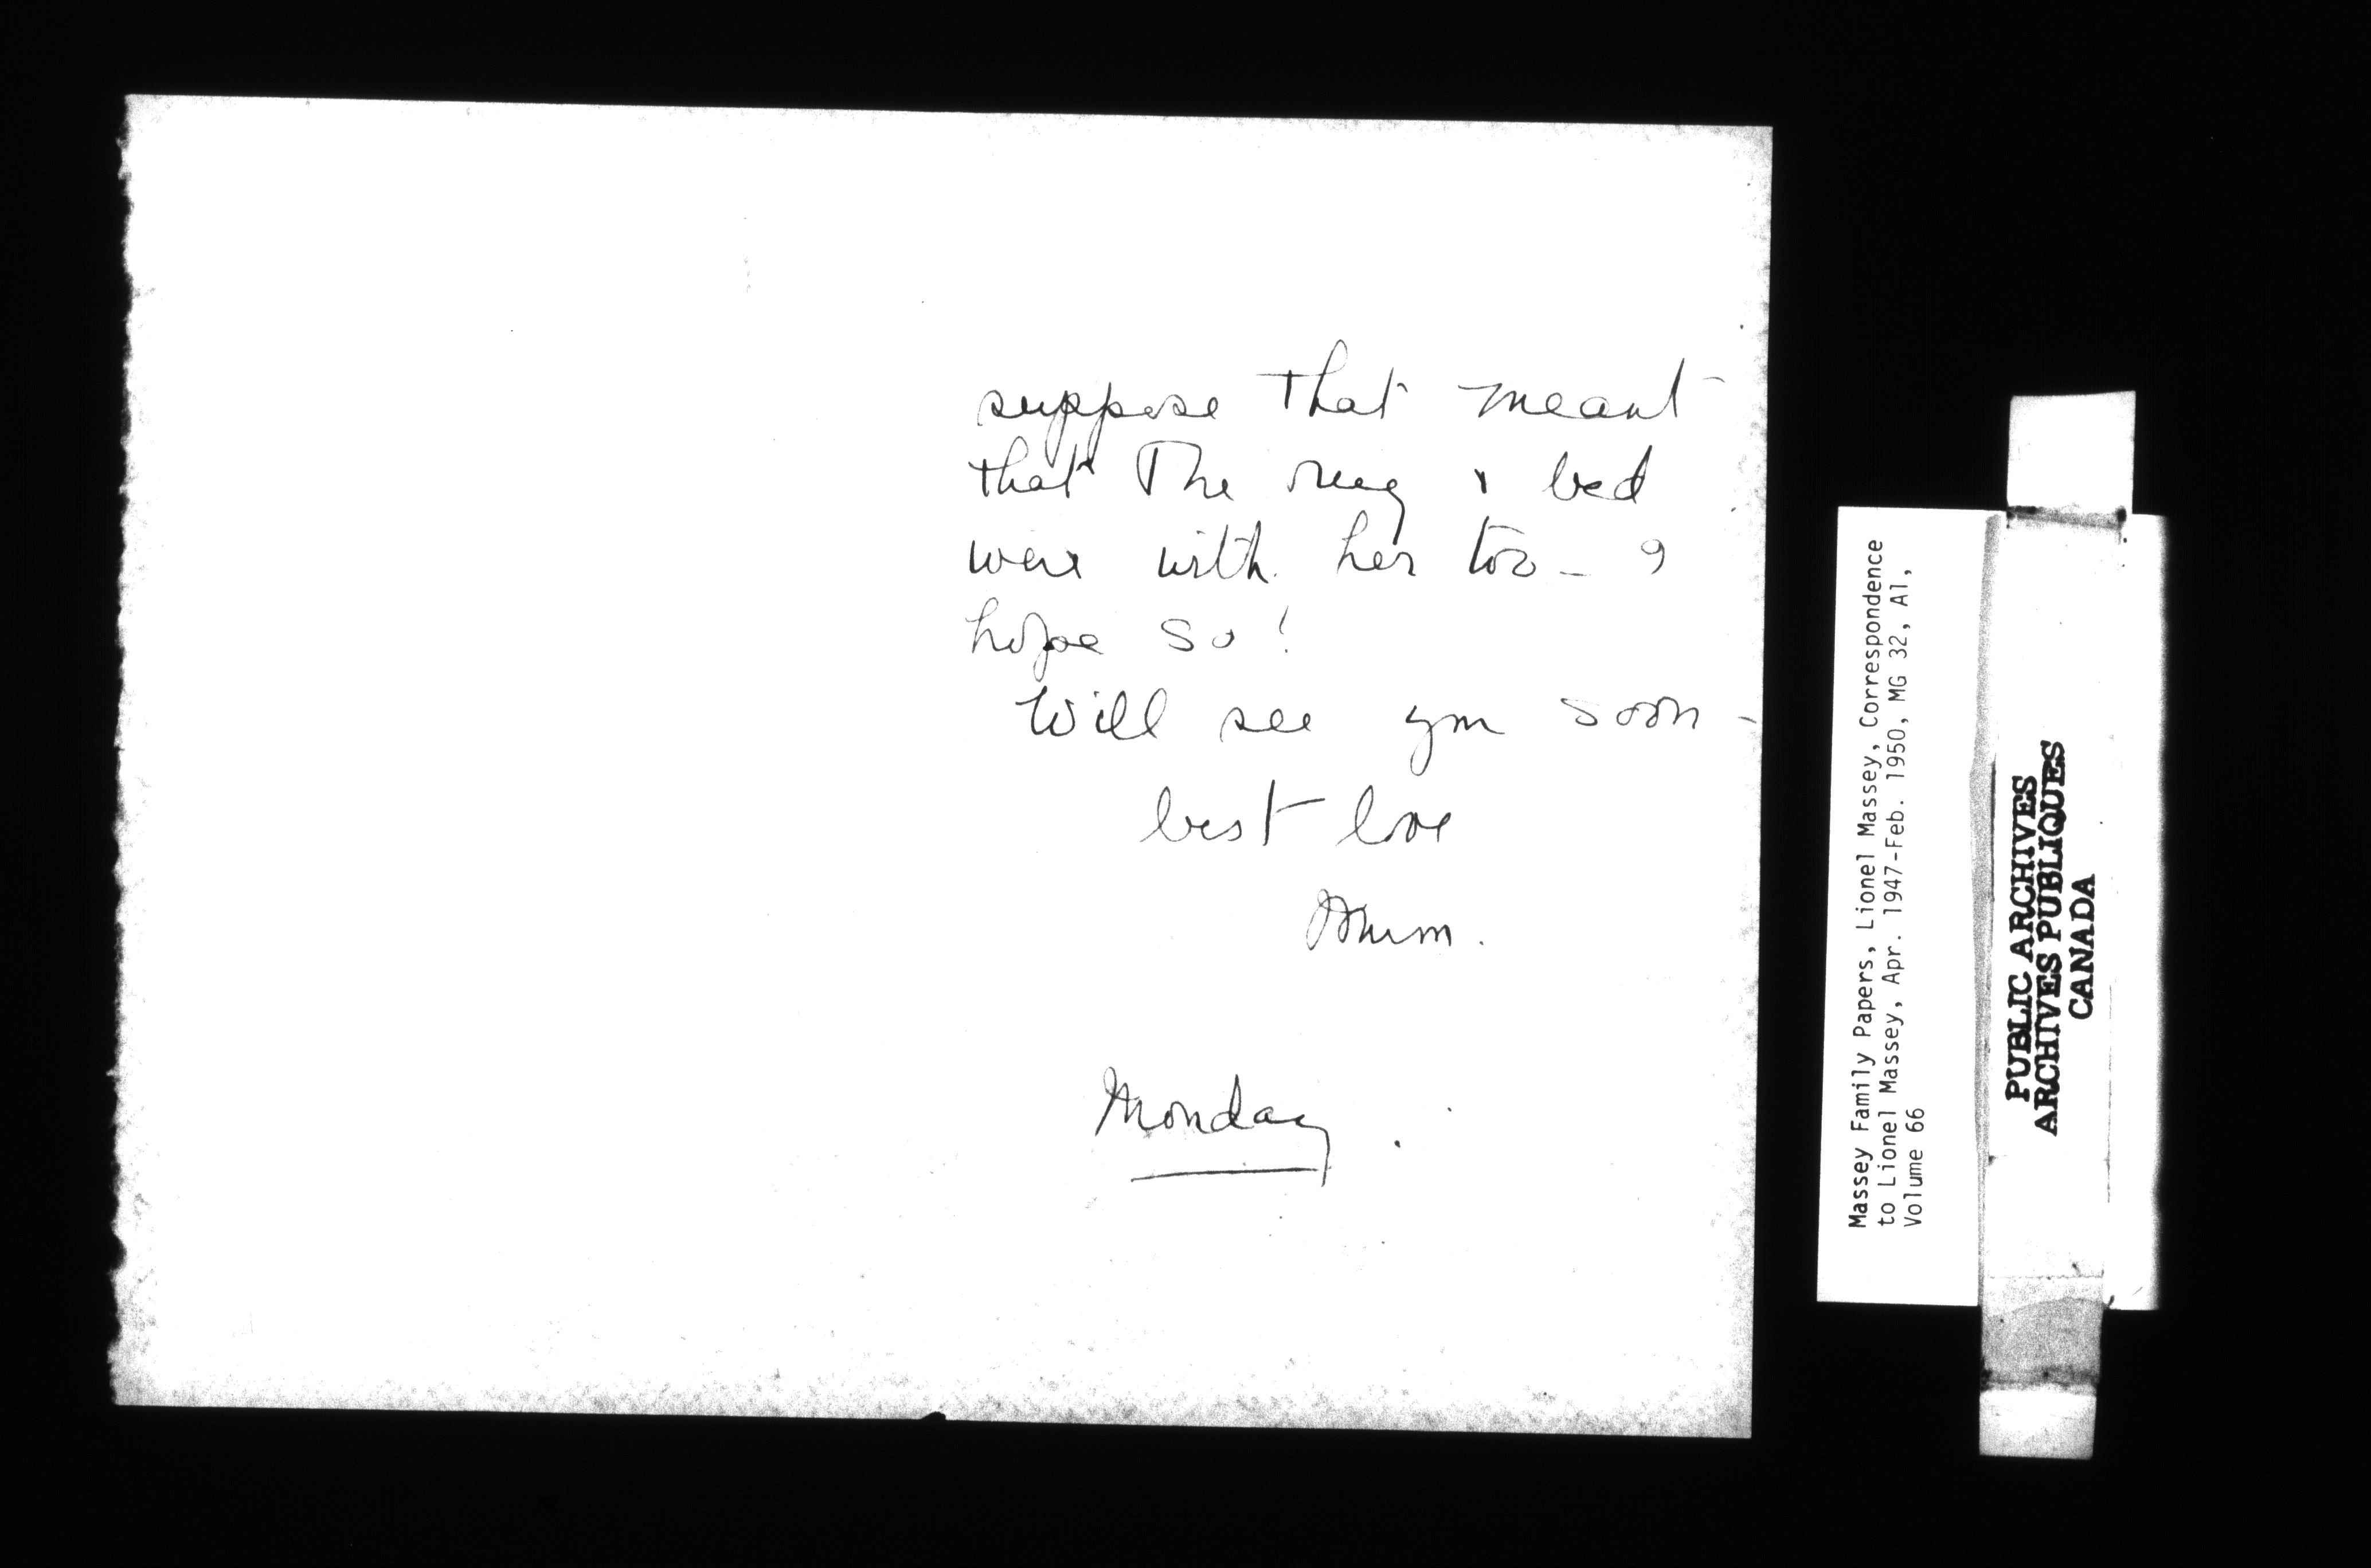 suppose that meant
that the rug & bed
were with her too – I
hope so!
Will see you soon –
best love
Mum.
Monday.
Massey Family Papers, Lionel Massey, Correspondence
to Lionel Massey, Apr. 1947-Feb. 1950, MG 32, A1,
Volume 66
PUBLIC ARCHIVES
ARCHIVES PUBLIQUES
CANADA